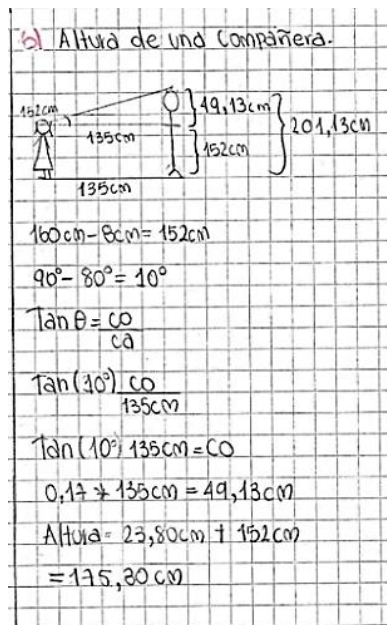 b) Altura de una compañera.
152cm
49,13cm
201,13cm
135cm
152cm
135cm
160cm - 8cm = 152cm
90° - 80° = 10°
Tan θ = co
ca
Tan (10°) co
135cm
Tan (10°) 135cm = CO
0,17 * 135cm = 49,13cm
Altura = 23,80cm + 152cm
= 175,80cm